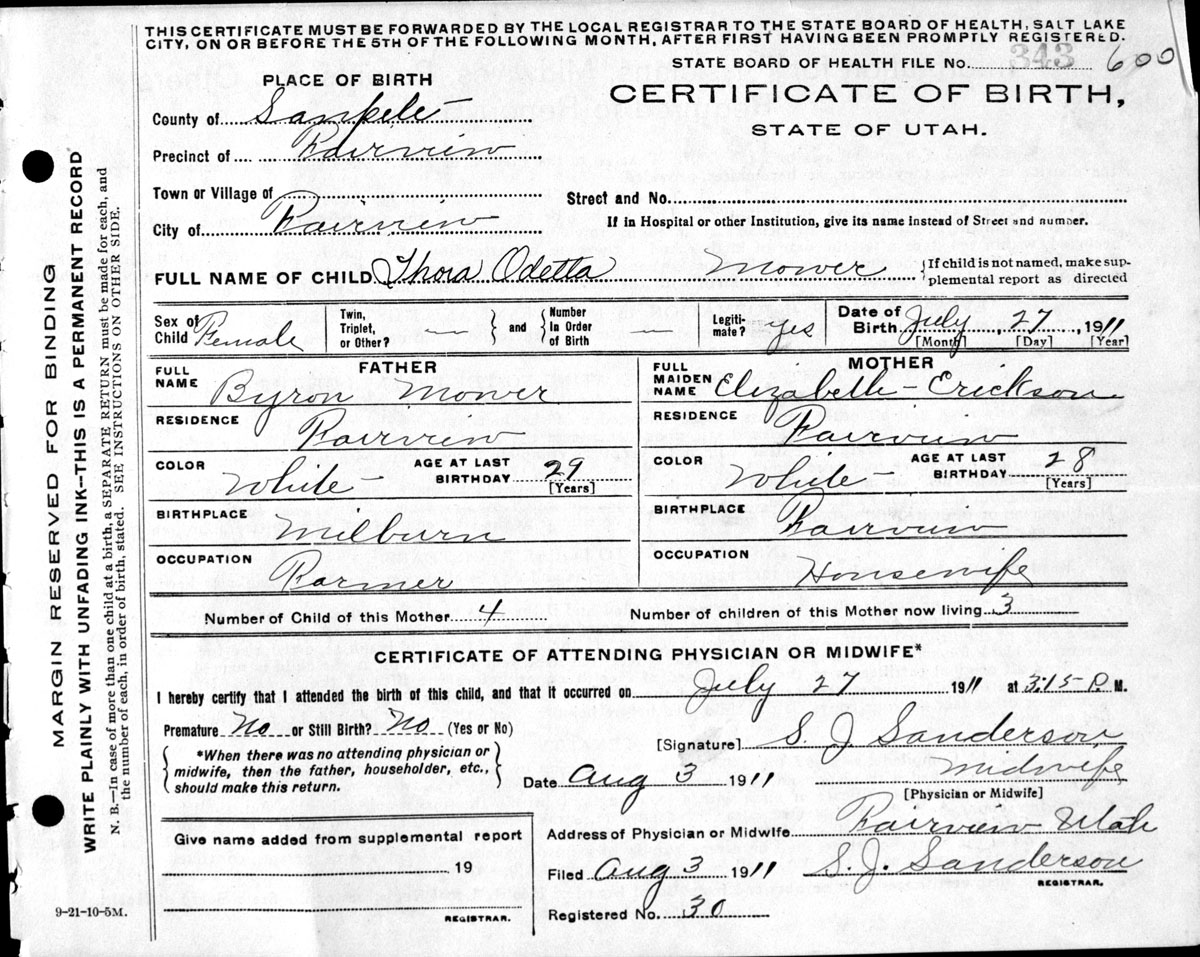 THIS CERTIFICATE MUST BE FORWARDED BY THE LOCAL REGISTRAR TO THE STATE BOARD OF HEALTH, SALT LAKE
CITY, ON OR BEFORE THE 5TH OF THE FOLLOWING MONTH, AFTER FIRST HAVING BEEN PROMPTLY REGISTERED.
STATE BOARD OF HEALTH FILE No. 343 600
PLACE OF BIRTH
CERTIFICATE OF BIRTH,
STATE OF UTAH.
County of Sanpete
Precinct of Fairview
Town or Village of
Street and No.
City of Fairview
If in Hospital or other Institution, give its name instead of Street and number.
FULL NAME OF CHILD Thora Odetta Mower {If child is not named, make sup-
plemental report as directed
Sex of Child Female
Twin, Triplet, or Other? —
} and { Number In Order of Birth —
Legiti- mate? yes
Date of Birth July, 27, 1911
[Month] [Day] [Year]
FATHER
MOTHER
FULL NAME Byron Mower
FULL MAIDEN NAME Elizabeth Erickson
RESIDENCE Fairview
RESIDENCE Fairview
COLOR White AGE AT LAST BIRTHDAY 29 [Years]
COLOR White AGE AT LAST BIRTHDAY 28 [Years]
BIRTHPLACE Milburn
BIRTHPLACE Fairview
OCCUPATION Farmer
OCCUPATION Housewife
Number of Child of this Mother 4 Number of children of this Mother now living 3
CERTIFICATE OF ATTENDING PHYSICIAN OR MIDWIFE*
I hereby certify that I attended the birth of this child, and that it occurred on July 27 1911 at 3:15 P. M.
Premature No or Still Birth? No (Yes or No)
[Signature] S. J Sanderson
{ *When there was no attending physician or
midwife, then the father, householder, etc.,
should make this return. }
Date Aug 3 1911 Midwife
[Physician or Midwife]
Give name added from supplemental report
19
REGISTRAR.
Address of Physician or Midwife Fairview Utah
Filed Aug 3 1911 S. J. Sanderson
REGISTRAR.
Registered No. 30
9-21-10-5M.
MARGIN RESERVED FOR BINDING
WRITE PLAINLY WITH UNFADING INK--THIS IS A PERMANENT RECORD
N. B.—In case of more than one child at a birth, a SEPARATE RETURN must be made for each, and
the number of each, in order of birth, stated. SEE INSTRUCTIONS ON OTHER SIDE.